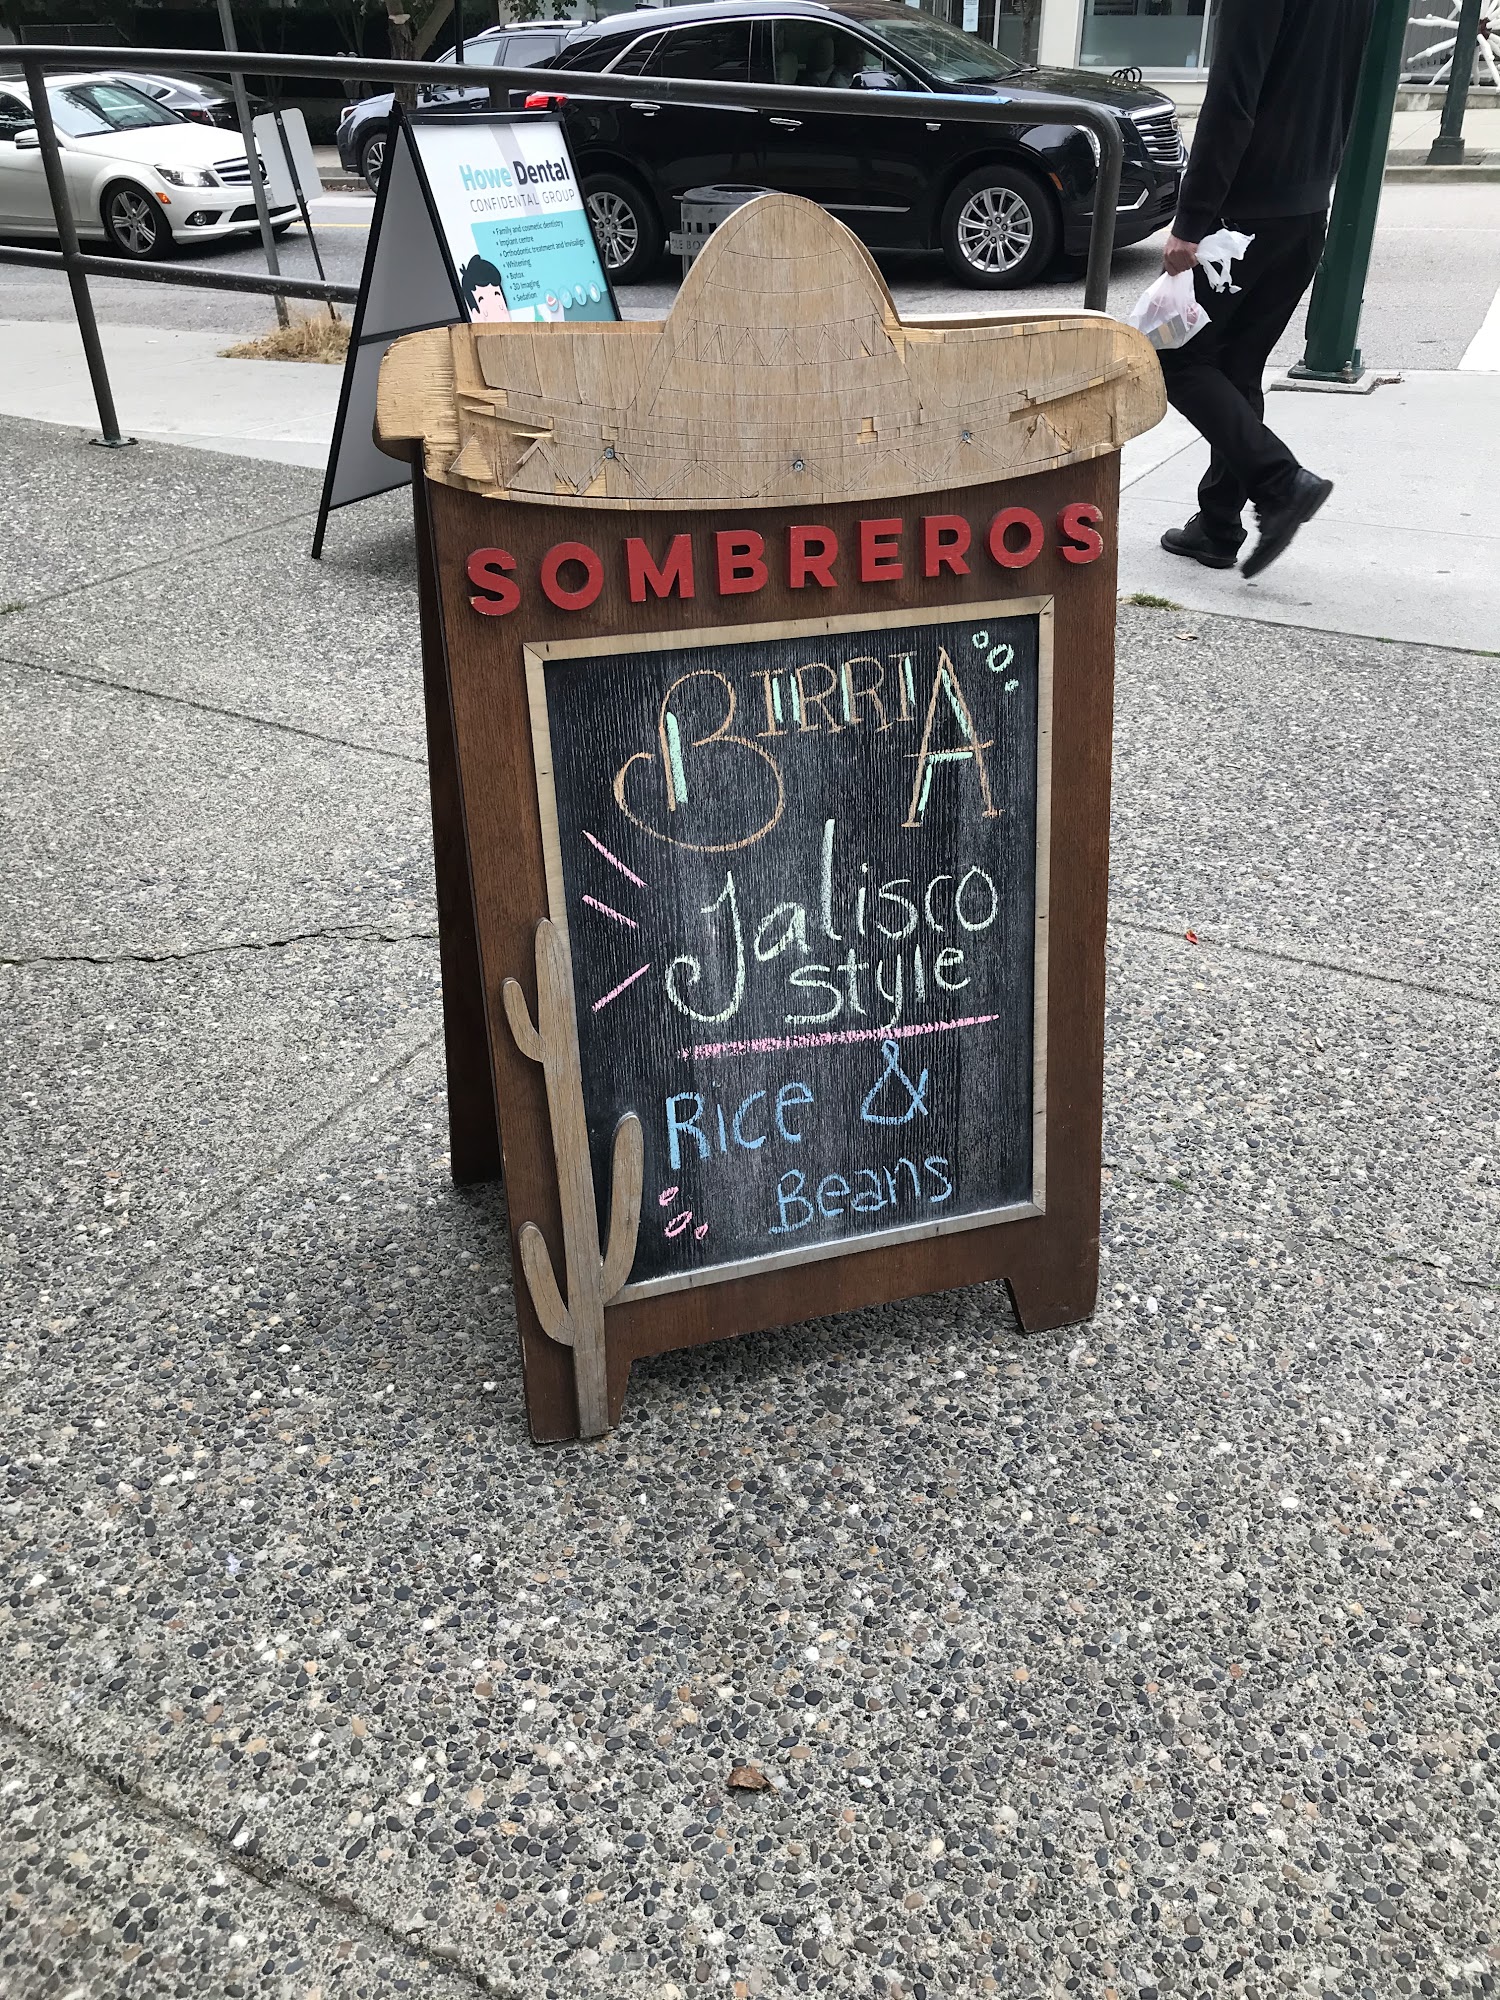 Howe Dental
CONFIDENTAL GROUP
• Family and cosmetic dentistry
• Implant centre
• Orthodontic treatment and Invisalign
• Whitening
• Botox
• 3D Imaging
• Sedation
SOMBREROS
BIRRIA
Jalisco
style
Rice &
Beans